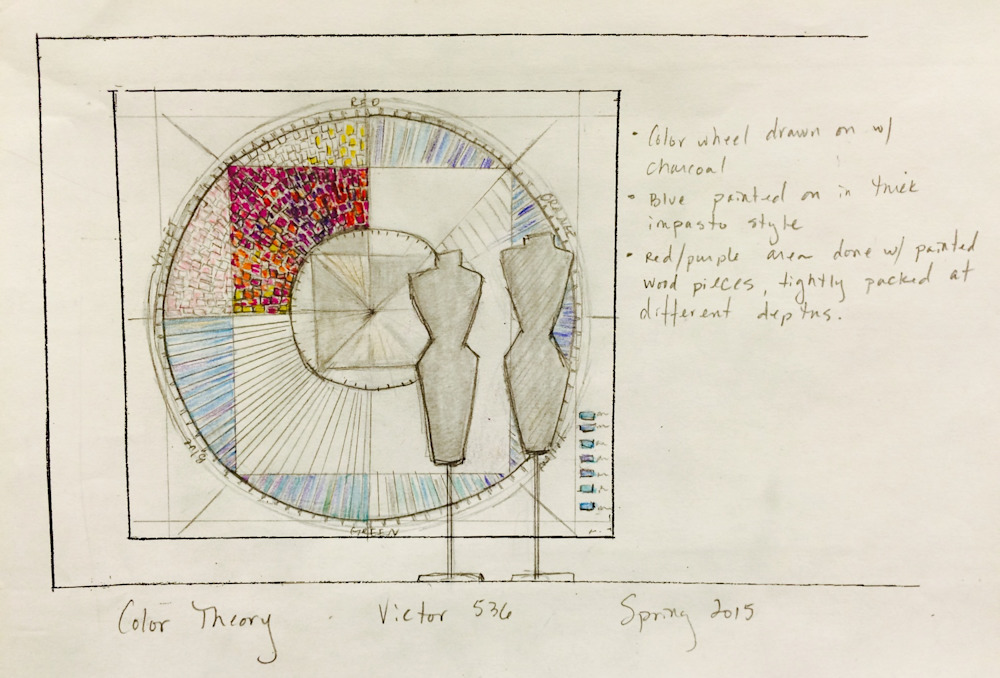 RED
ORANGE
VIOLET
BLUE
GREEN
• Color wheel drawn on w/
charcoal
• Blue painted on in thick
impasto style
• Red/purple area done w/ painted
wood pieces, tightly packed at
different depths.
Color Theory
Victor 536
Spring 2015